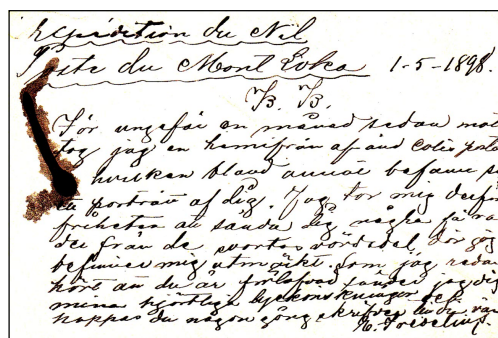 Expédition du Nil
Poste du Mont Evka 1-5-1898.
B. B.
För ungefär en månad sedan mot
tog jag en hemifrån afsänd colis pos
hvilken bland annat befann s
porträtt af dig. Jag tar mig derför
friheten att sända dig några få ra
der från de svartas vördel, der jag
befinner mig utmärkt. Som jag redan
hört att du är förlofvad sänder jag dig
mina hjertliga lyckönskningar och
hoppas du någon gång skrifver